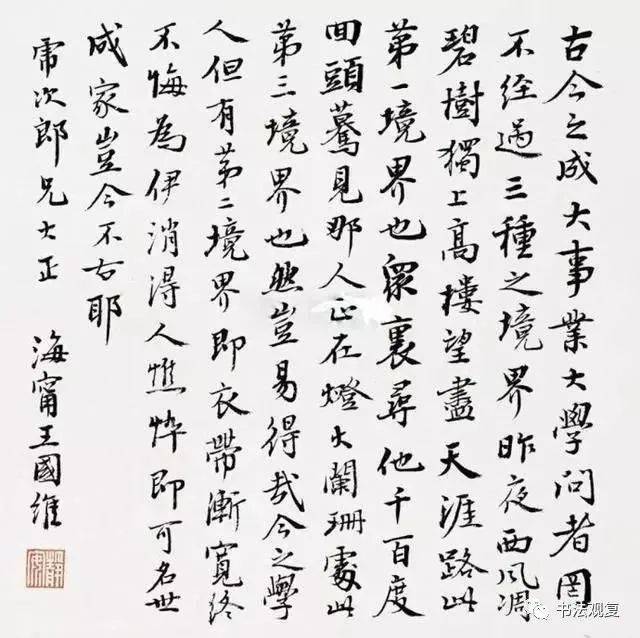 古今之成大事業大學问者罔
不经過三種之境界昨夜西风凋
碧樹獨上高樓望盡天涯路此
第一境界也眾裏尋他千百度
回頭驀見那人正在燈火闌珊處此
第三境界也然豈易得哉今之學
人但有第二境界即衣帶漸寬终
不悔為伊消得人憔悴即可名世
成家豈今不古耶
帋次郎兄大正
海甯王國維
靜安
书法观复